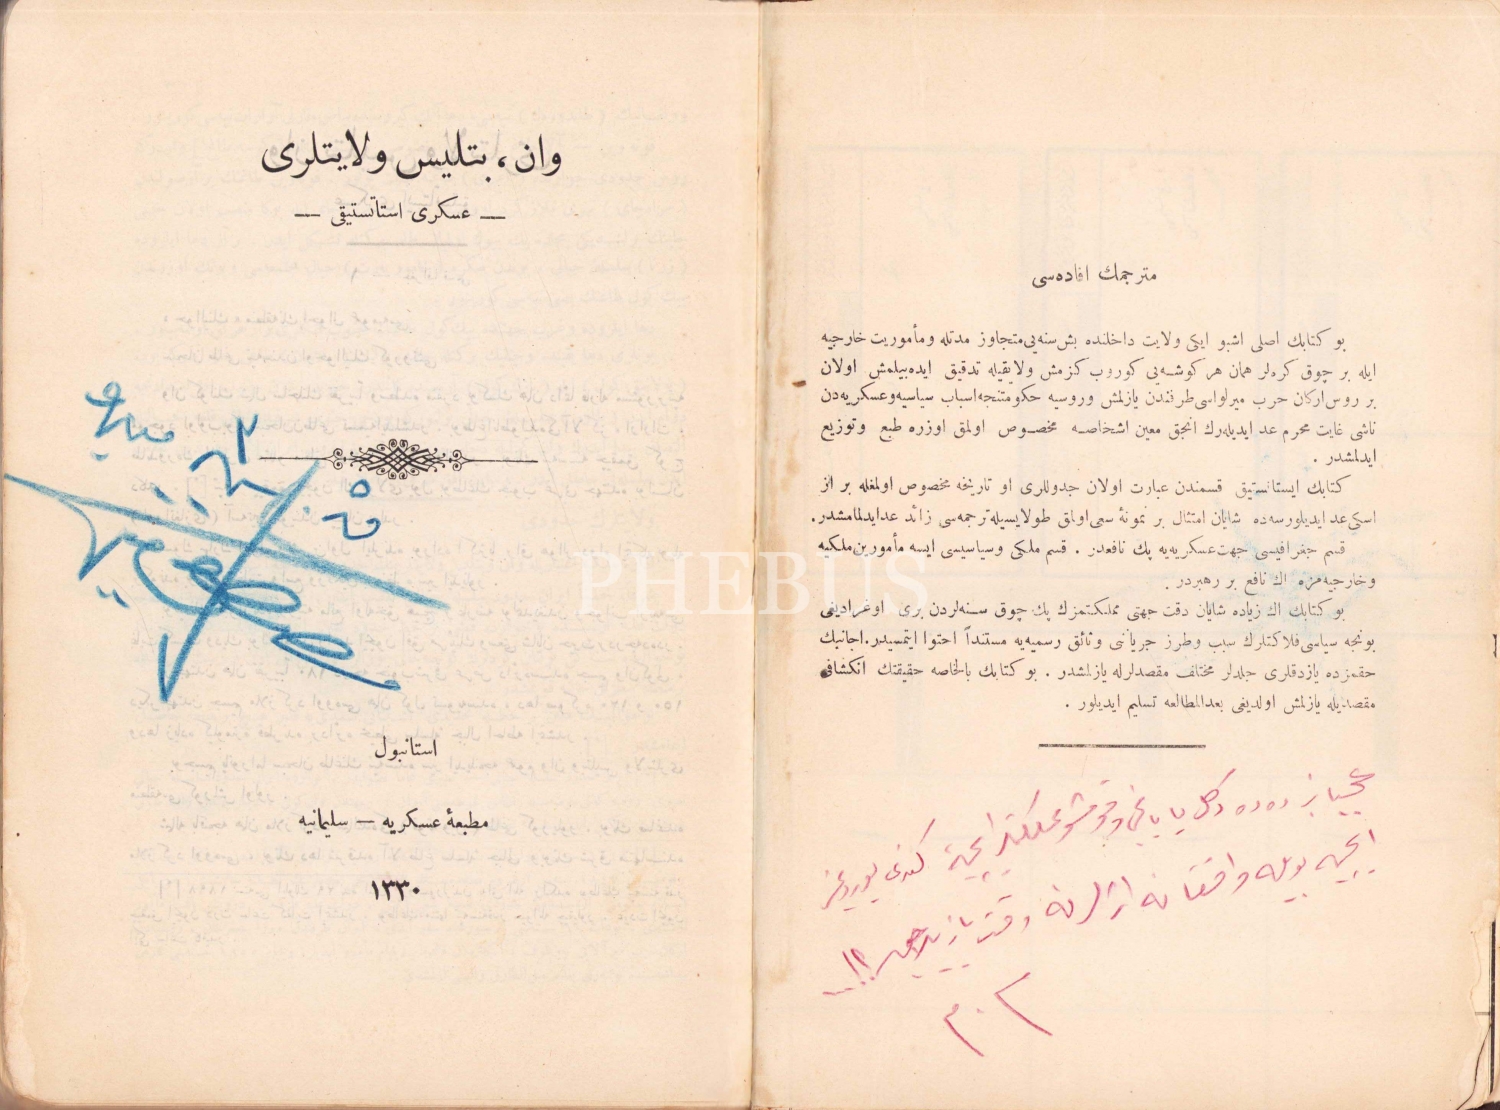 وان ، بتليس ولايتلری
— عسكری استاتستيقی —
استانبول
مطبعهٔ عسكريه — سليمانيه
١٣٣٠
مترجمك افاده‌سی
بو كتابك اصلی اشبو ايكی ولايت داخلنده بش سنه‌يی متجاوز مدتله ومأموريت خارجيه
ايله بر چوق كره‌لر همان هر كوشه‌يی كوروب كزمش ولايقيله تدقيق ايده‌بيلمش اولان
بر روس اركان حرب ميرلواسی طرفندن يازلمش وروسيه حكومتنجه اسباب سياسيه وعسكريه‌دن
ناشی غايت محرم عد ايديله‌رك انجق معين اشخاصه مخصوص اولمق اوزره طبع وتوزيع
ايدلمشدر .
كتابك ايستاتستيق قسمندن عبارت اولان جدوللری او تاريخه مخصوص اولمغله بر از
اسكی عد ايديلورسه‌ده شايان امتثال بر نمونهٔ سعی اولمق طولايسيله ترجمه‌سی زائد عد ايدلمامشدر.
قسم جغرافيسی جهت عسكريه‌يه پك نافعدر . قسم ملكی وسياسيسی ايسه مأمورين ملكيه
وخارجيه‌مزه اك نافع بر رهبردر .
بو كتابك اك زياده شايان دقت جهتی مملكتمزك پك چوق سنه‌لردن بری اوغراديغی
بونجه سياسی فلاكتلرك سبب وطرز جرياننی وثائق رسميه‌يه مستنداً احتوا ايتمسيدر. اجانبك
حقمزده يازدقلری جلدلر مختلف مقصدلرله يازلمشدر . بو كتابك بالخاصه حقيقتك انكشافی
مقصديله يازلمش اولديغی بعدالمطالعه تسليم ايديلور .
PHEBUS